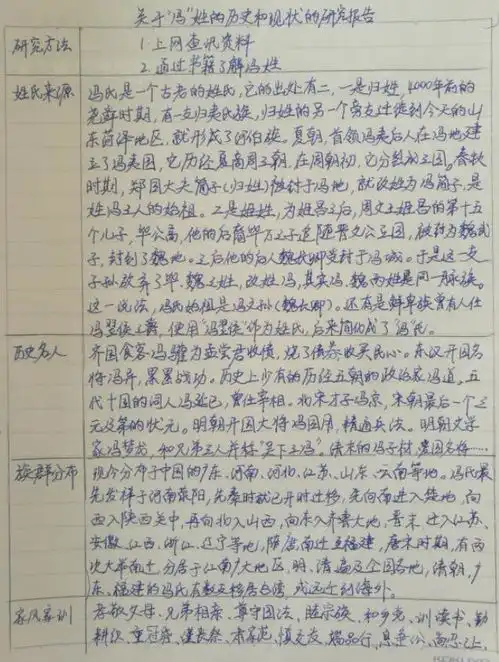 关于“冯”姓的历史和现状的研究报告
研究方法
1.上网查讯资料
2.通过书籍了解冯姓
姓氏来源
冯氏是一个古老的姓氏,它的出处有二,一是归姓,4000年前的
尧舜时期,有一支归夷氏族,归姓的另一个旁支迁徙到今天的山
东菏泽地区,就形成了河伯族。夏朝,首领冯夷后人在冯地建
立了冯夷国,它历经夏商周三朝,在周朝初,它分裂成三国。春秋
时期,郑国大夫简子(归姓)被封于冯地,就改姓为冯简子,是
姓冯之人的始祖。2是姬姓,为姬昌之后,周文王姬昌的第十五
个儿子,毕公高,他的后裔毕万之子追随晋文公立国,被封为魏武
子,封到了魏地。之后他的后人魏长卿受封于冯城。于是这一支
子孙放弃了毕、魏之姓,改姓冯,其实冯、魏两姓是同一脉族。
这一说法,冯氏始祖是冯文孙(魏长卿)。还有是鲜卑族曾有人仕
冯翌侯之爵,使用“冯翌侯”作为姓氏,后来简化成了“冯”氏。
历史名人
齐国食客冯驩为孟尝君收债,烧了债券收买民心。东汉开国名
将冯异,累累战功。历史上少有的历经五朝的政治家冯道。五
代十国的词人冯延巳,曾任宰相。北宋才子冯京,宋朝最后一个三
元及第的状元。明朝开国大将冯国用,精通兵法。明朝文学
家冯梦龙,和兄弟三人并称“吴下三冯”。清末的冯子材,爱国名将……
族群分布
现今分布于中国的广东、河南、河北、江苏、山东、云南等地。冯氏最
先发祥于河南荥阳,先秦时就已开时迁移,先向南进入楚地,向
西入陕西关中,再向北入山西,向东入齐鲁大地,晋末迁入江苏、
安徽、江西、浙江、辽宁等地,隋唐南迁至福建,唐末时期,有两
次大举南迁,分居于江南广大地区,明、清遍及全国各地,清朝,广
东、福建的冯氏有数支移居台湾,或远迁到海外。
家风家训
孝敬父母、兄弟相亲、尊守国法、睦宗族、和乡党、训读书、勤
耕织、重冠婚、谨丧祭、肃家范、慎交友、端品行、